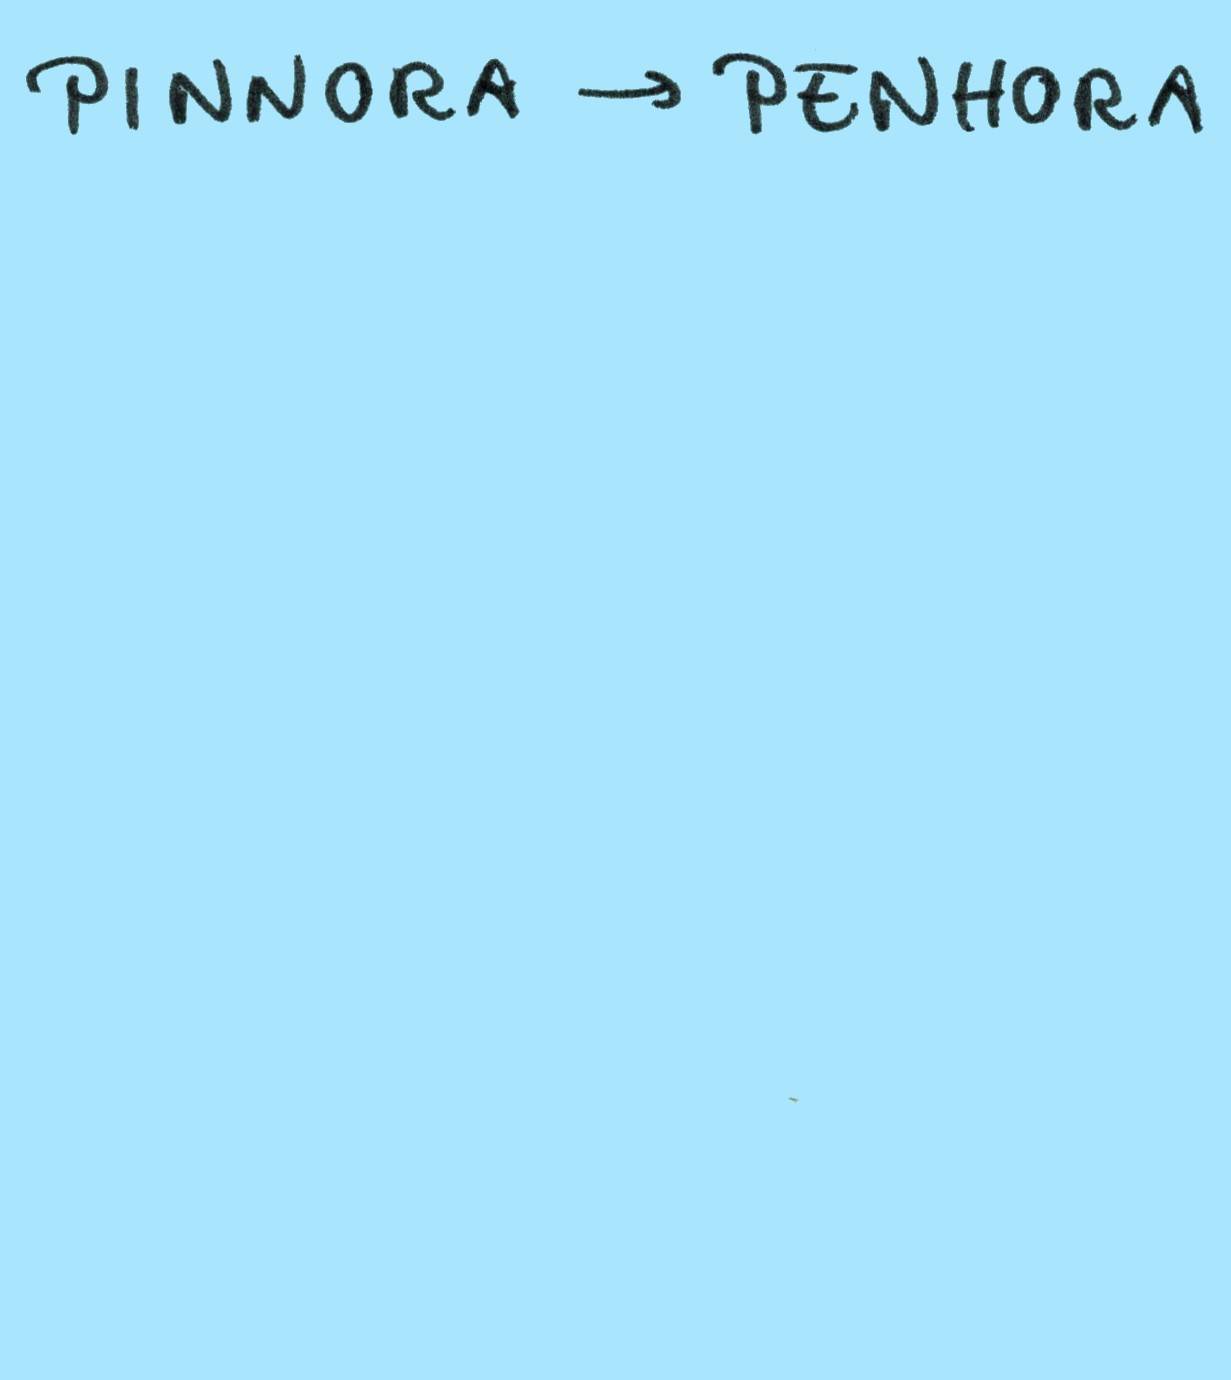 PINNORA → PENHORA